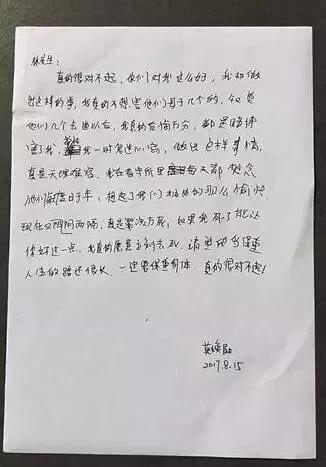 林先生：
真的很对不起，你们对我这么好，我却做
出这样的事，我真的不想害他们母子几个的，知道
他们几个去世以后，我真的后悔万分，都是赌博
害了我，我一时鬼迷心窍，做出这样事情，
真是天理难容，我在看守所里每天都挂念
他们
想起了我们相处的那么愉快，
现在阴阳两隔，真是罪该万死，如果我死了能让
你好过一点，我真的愿意立刻去死，请您
保重
人生的路还很长，一定要保重身体，真的很对不起！
莫焕晶
2017.8.15